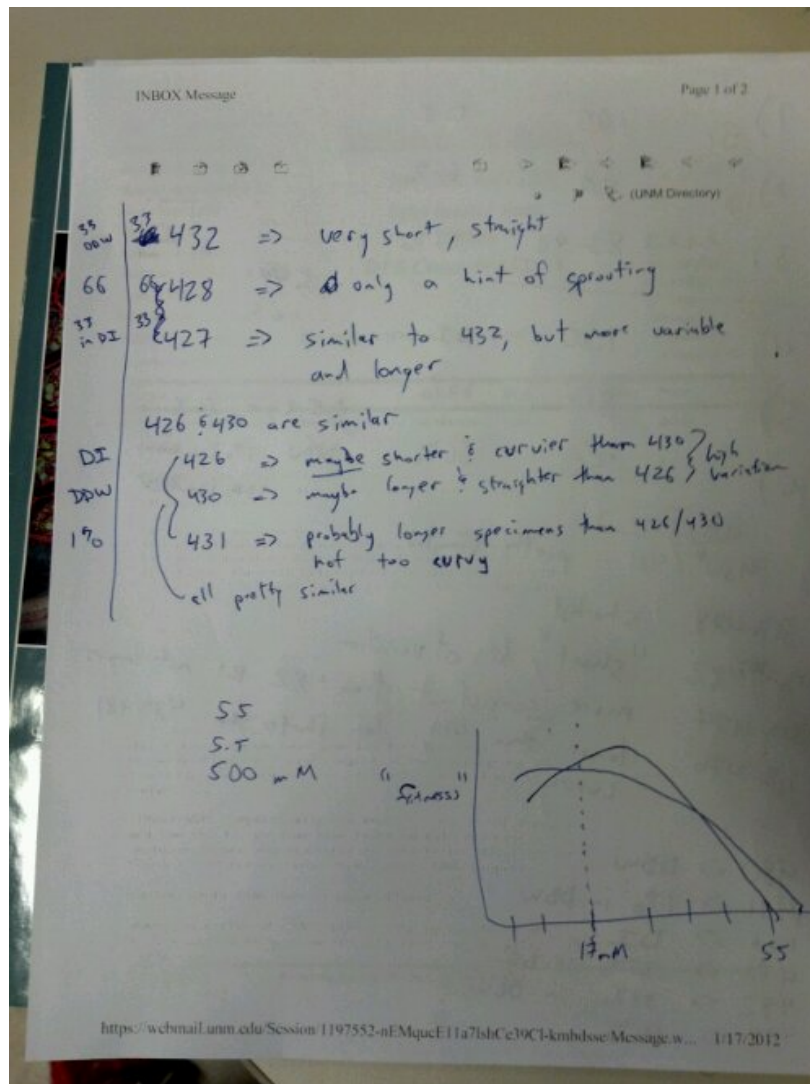 INBOX Message Page 1 of 2
(UNM Directory)
33 DDW 33 432 => very short, straight
66 66 428 => only a hint of sprouting
33 in DI 33 427 => similar to 432, but more variable
and longer
426 & 430 are similar
DI 426 => maybe shorter & curvier than 430 } high
DDW 430 => maybe longer & straighter than 426 } variation
1% 431 => probably longer specimens than 426/430
not too curvy
all pretty similar
55
5.5
500 mM
"fitness"
17mM 55
https://webmail.unm.edu/Session/ 1/17/2012